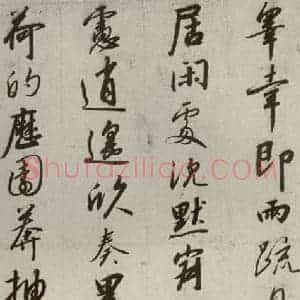 皋幸即兩疏
居閑處沈默寂
慮逍遙欣奏累
荷的歷園莽抽